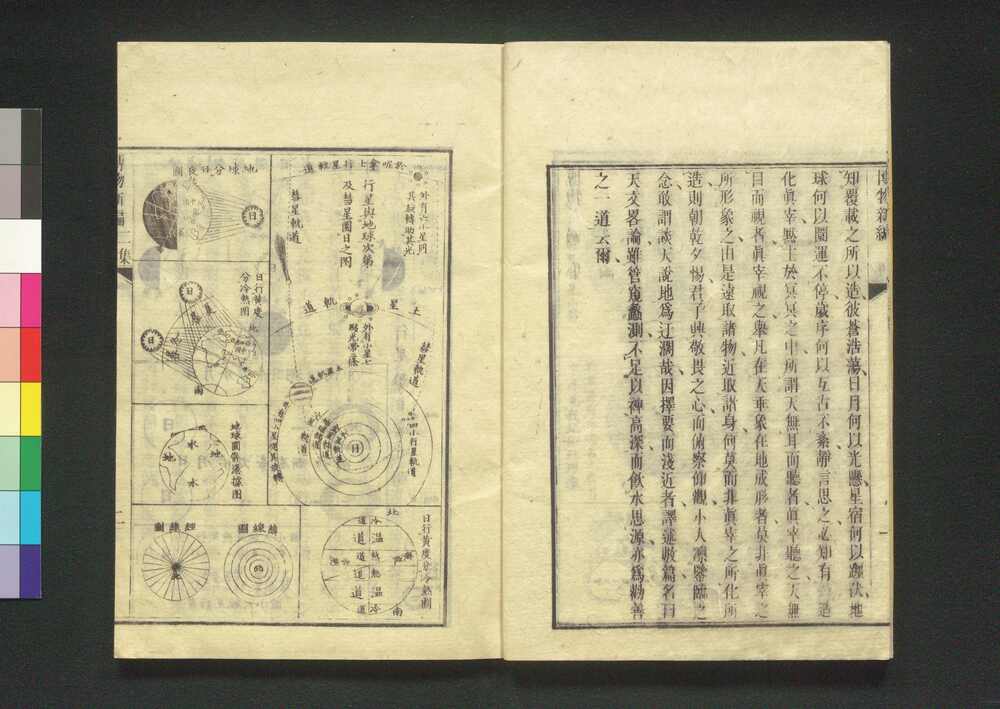 博物新編
知覆載之所以造彼蒼浩蕩日月何以光懸星宿何以躔伏地
球何以關運不停歲序何以互古不紊靜言思之必知有造
化眞宰黙主於冥冥之中所謂天無耳而聽者眞宰聽之天無
目而視者眞宰視之舉凡在天垂象在地成形者莫非眞宰之
所形象之由是遠取諸物近取諸身何莫而非眞宰之所化所
造則朝乾夕惕君子興敬畏之心而俯察仰觀小人凛鑒臨之
念敢謂談天說地爲迂濶哉因擇要而淺近者譯述數篇名曰
天文畧論雖管窺蠡測不足以神高深而飲水思源亦爲勸善
之一道云爾
外有六小星同
其旋轉助其光
行星與地球次第
及彗星圜日之圖
彗星軌道
土星軌道
外有小星七
彗星軌道
四小行星軌道
日
地球分日夜圖
日
日行黃度
分冷熱圖
日
日
南
地球圖常滿據圖
地
水
地
水
日行黃度分冷熱圖
北
冷道
温道
熱道
熱道
温道
冷道
南
緯線圖
經線圖
博物新編二集